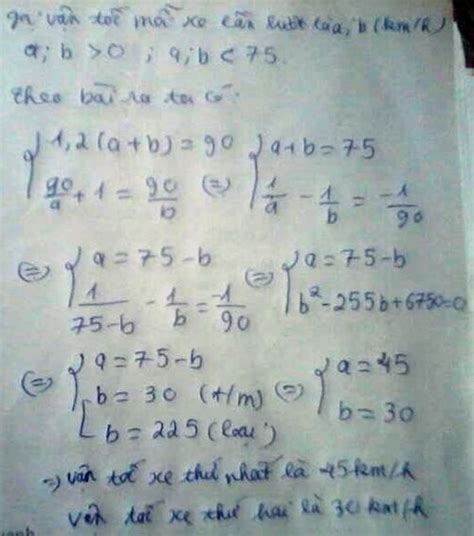 vận tốc mỗi xe lần lượt là a; b (km/h)
a; b > 0 ; a; b < 75.
theo bài ra ta có:
{ 1,2(a+b) = 90 { a+b = 75
{ 90/a + 1 = 90/b (=) { 1/a - 1/b = -1/90
(=) { a = 75-b (=) { a = 75-b
{ 1/(75-b) - 1/b = -1/90 { b² - 255b + 6750 = 0
(=) { a = 75-b { a = 45
{ [ b = 30 (t/m) (=) { b = 30
[ b = 225 (loại)
=> vận tốc xe thứ nhất là 45km/h
vận tốc xe thứ hai là 30km/h